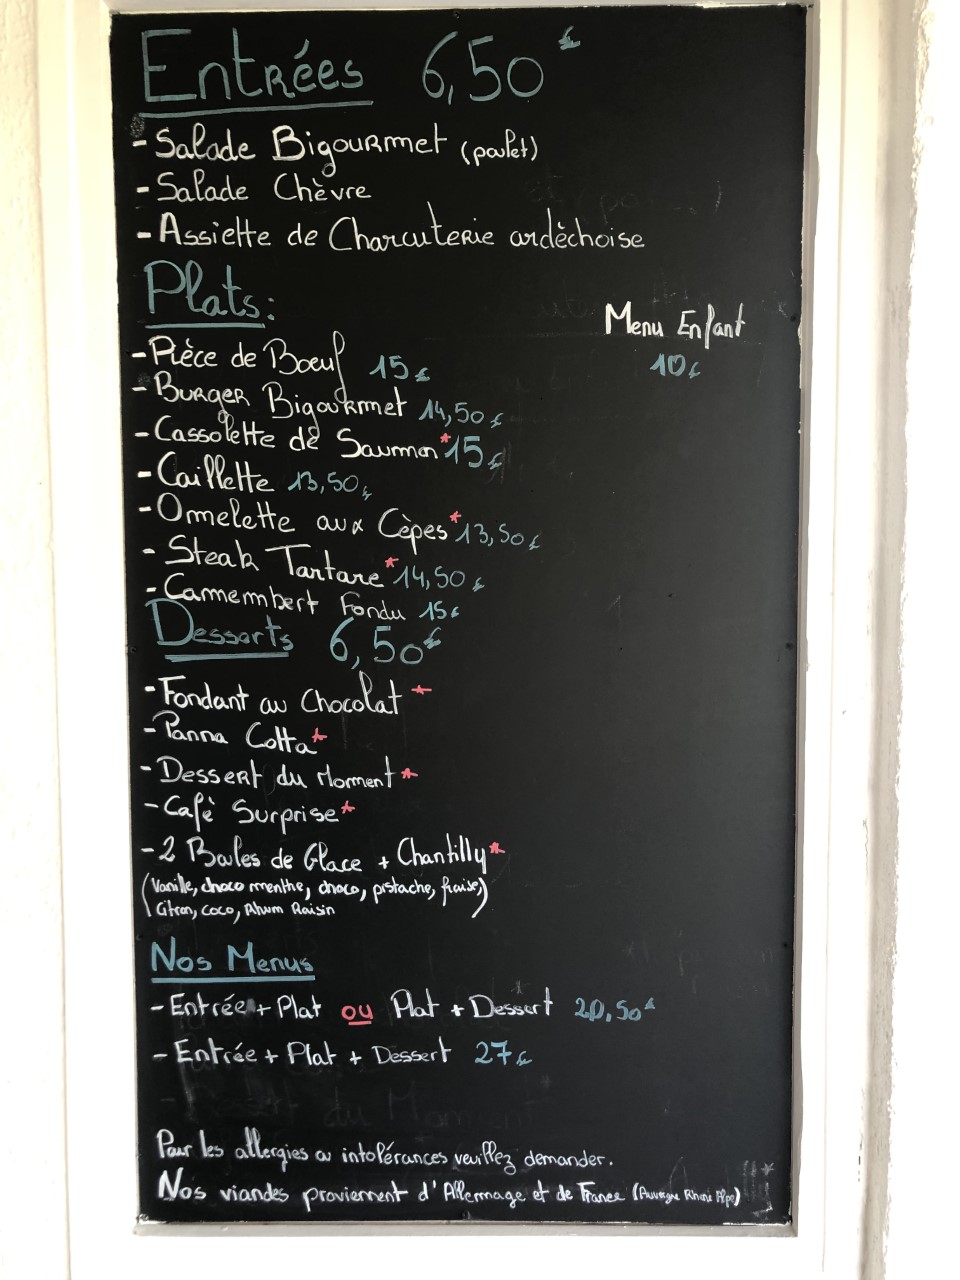 Entrées 6,50€
- Salade Bigourmet (poulet)
- Salade Chèvre
- Assiette de Charcuterie ardèchoise
Plats:
Menu Enfant
10€
- Pièce de Boeuf 15€
- Burger Bigourmet 14,50€
- Cassolette de Saumon* 15€
- Caillette 13,50€
- Omelette aux Cèpes* 13,50€
- Steak Tartare* 14,50€
- Camembert Fondu 15€
Desserts 6,50€
- Fondant au Chocolat *
- Panna Cotta*
- Dessert du Moment*
- Cafè Surprise*
- 2 Boules de Glace + Chantilly*
(Vanille, choco menthe, choco, pistache, fraise,
Citron, coco, Rhum Raisin)
Nos Menus
- Entrée + Plat ou Plat + Dessert 20,50€
- Entrée + Plat + Dessert 27€
Pour les allergies ou intolérances veuillez demander.
Nos viandes proviennent d'Allemage et de France (Auvergne Rhone Alpe)